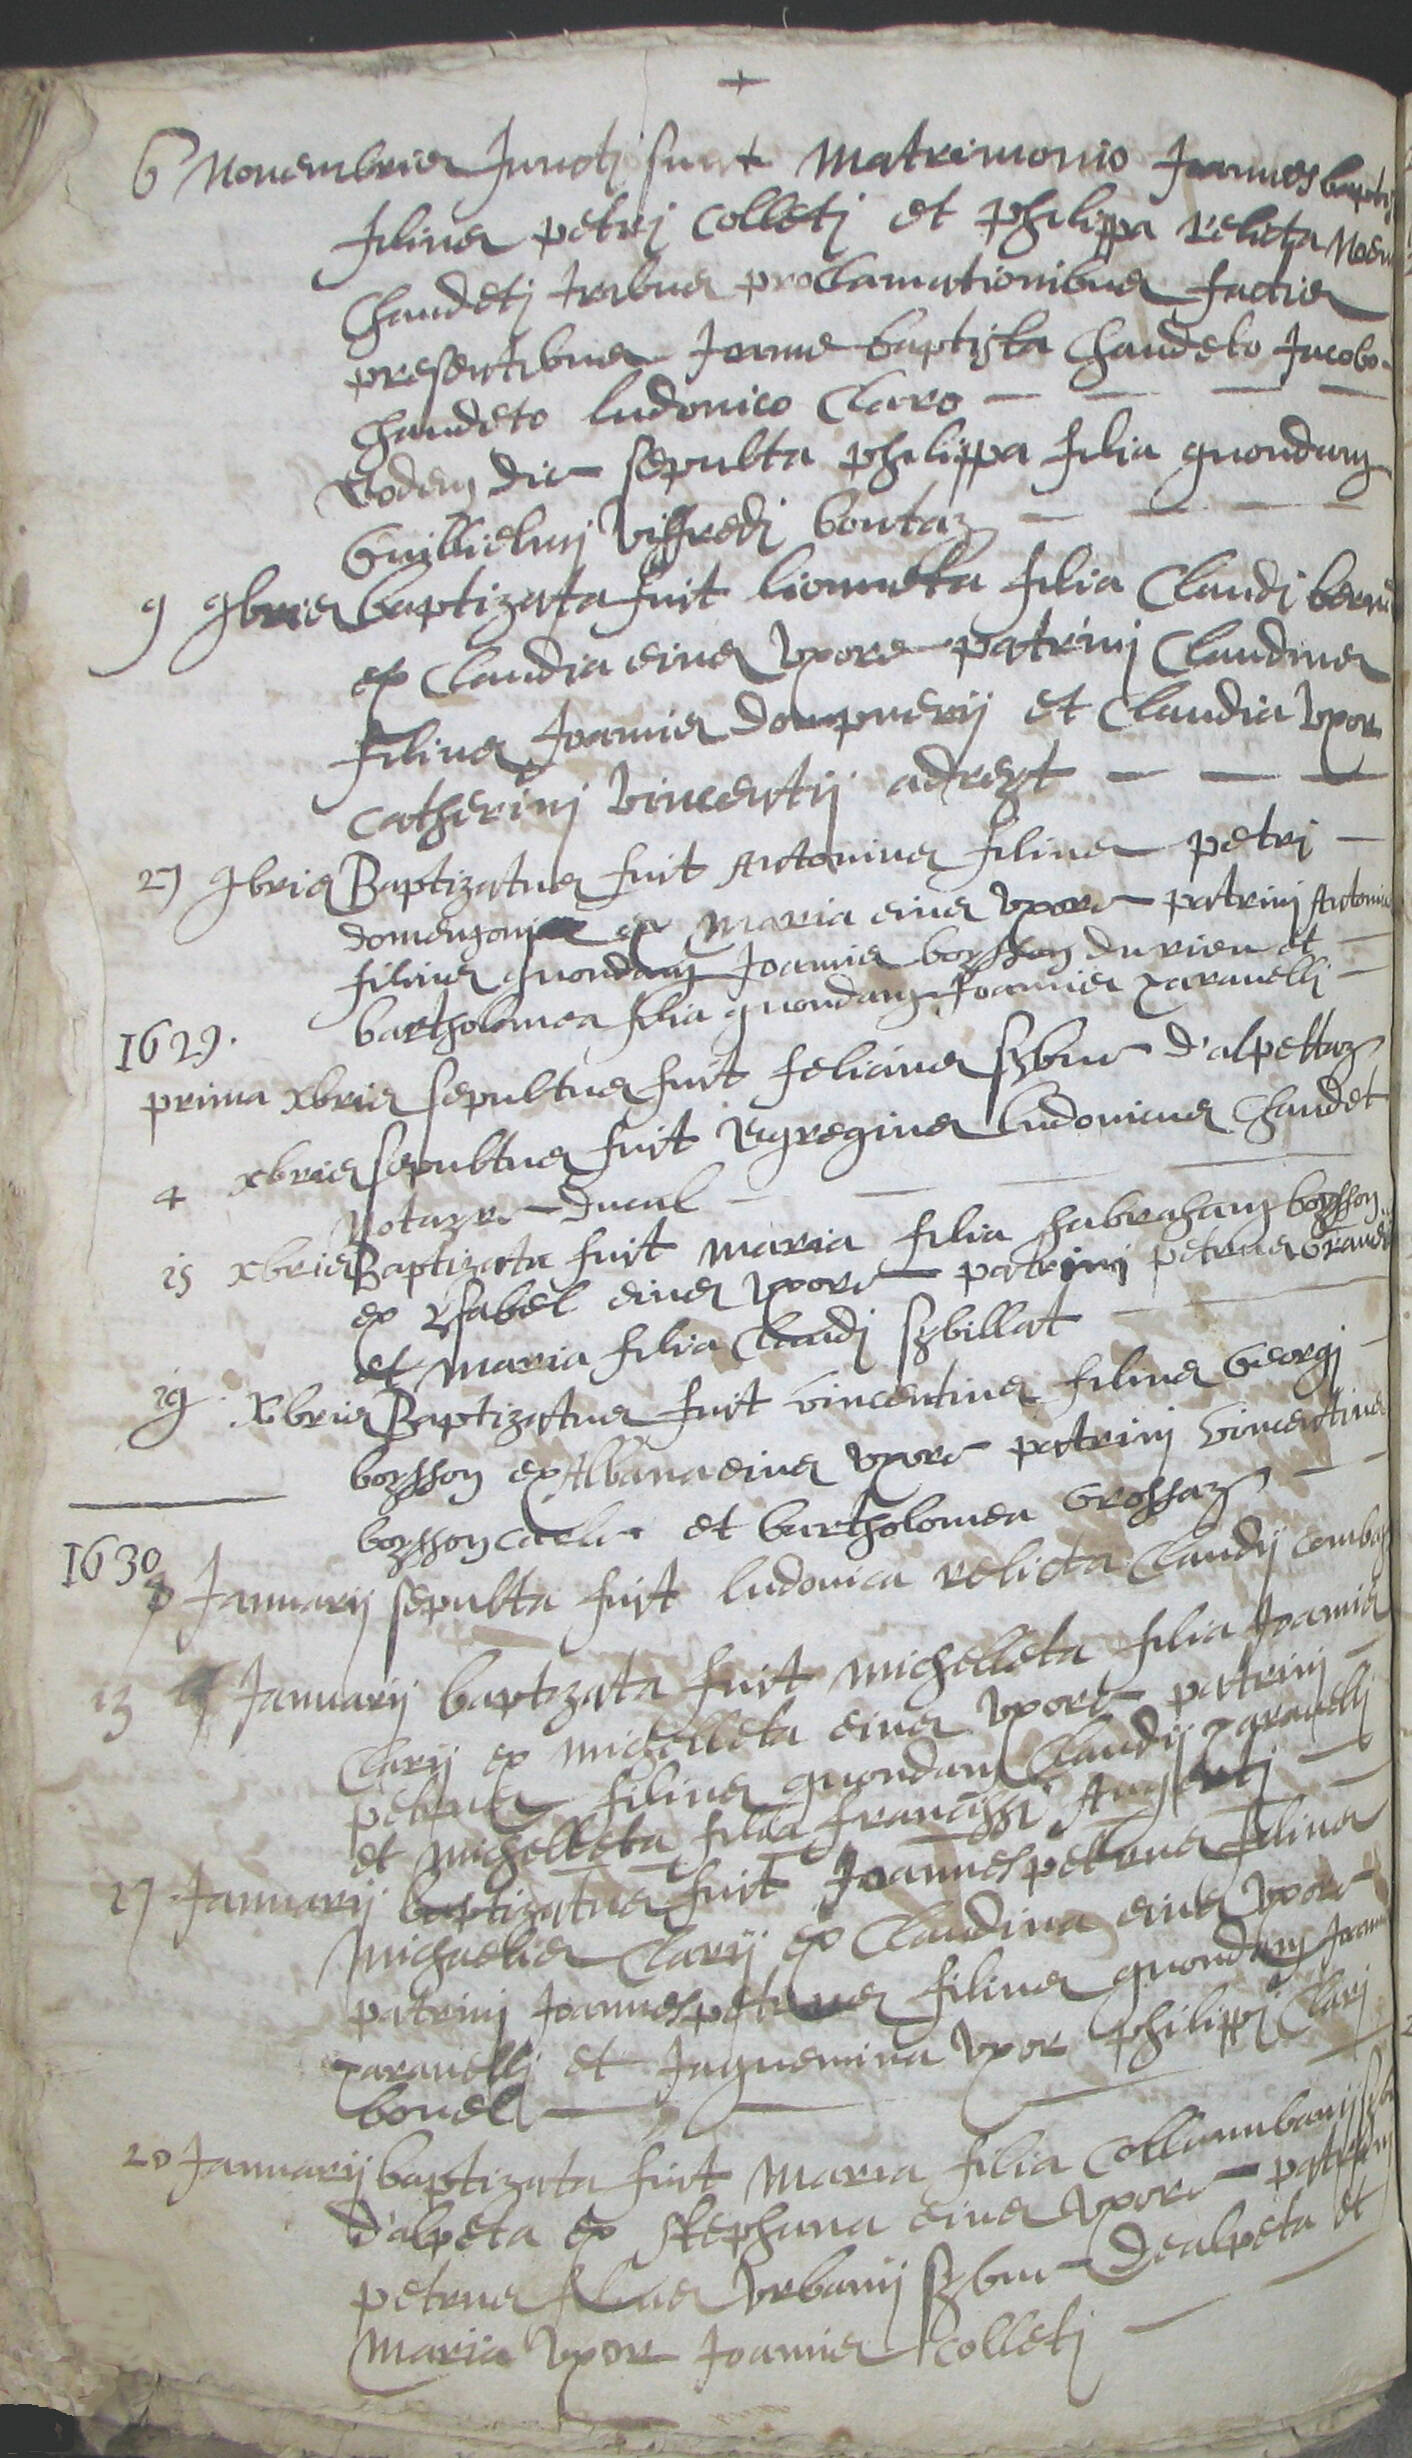 +
6 Novembris Juncti sunt Matrimonio Joannes bapti
filius petri Colleti et philippa relicta Noe
Chaudeti tribus proclamationibus factis
presentibus Joanne baptista Chaudeto Jacobo
Chaudeto ludovico Claro
Eodem die sepulta philippa filia quondam
Guillielmi Viffredi boutaz
9 9bris baptizata fuit lionneta filia Claudi
ex Claudia eius uxore patrini Claudius
filius Joannis dompnerij et Claudia uxor
Catherini Vincentij adrezt
27 9bris Baptizatus fuit Antonius filius petri
ex Maria eius uxore patrini Antonius
filius quondam Joannis boysson durieu et
bartholomea filia quondam Joannis xaravelli
1629.
prima xbris sepultus fuit felicius sybue d'alpettaz
4 xbris sepultus fuit Egregius ludovicus Chaudet
Notayre ducal
15 xbris Baptizata fuit maria filia habraham boysson
ex ysabel eius uxore patrini petrus
et maria filia Claudi sybillat
19 Xbris Baptizatus fuit vincentius filius Georgi
boysson ex Albana eius uxore patrini Vincentius
boysson et bartholomea Grossaz
1630
8 Januarij sepulta fuit ludovica relicta Claudij combaz
13 Januarij baptizata fuit michelleta filia Joannis
Clarij ex michelleta eius uxore patrini
petrus filius quondam Claudij xaravelli
et michelleta filia
27 Januarij baptizatus fuit Joannespetrus filius
Michaelis Clarij ex Claudina eius uxore
patrini Joannespetrus filius quondam
xaravelli et Jaquemina uxor philippi Clari
bonel
20 Januarij baptizata fuit Maria filia Collumbani
d'alpeta ex Stephana eius uxore patrini
petrus filius Urbanij sybue dealpeta et
Maria uxor Joannis Colleti